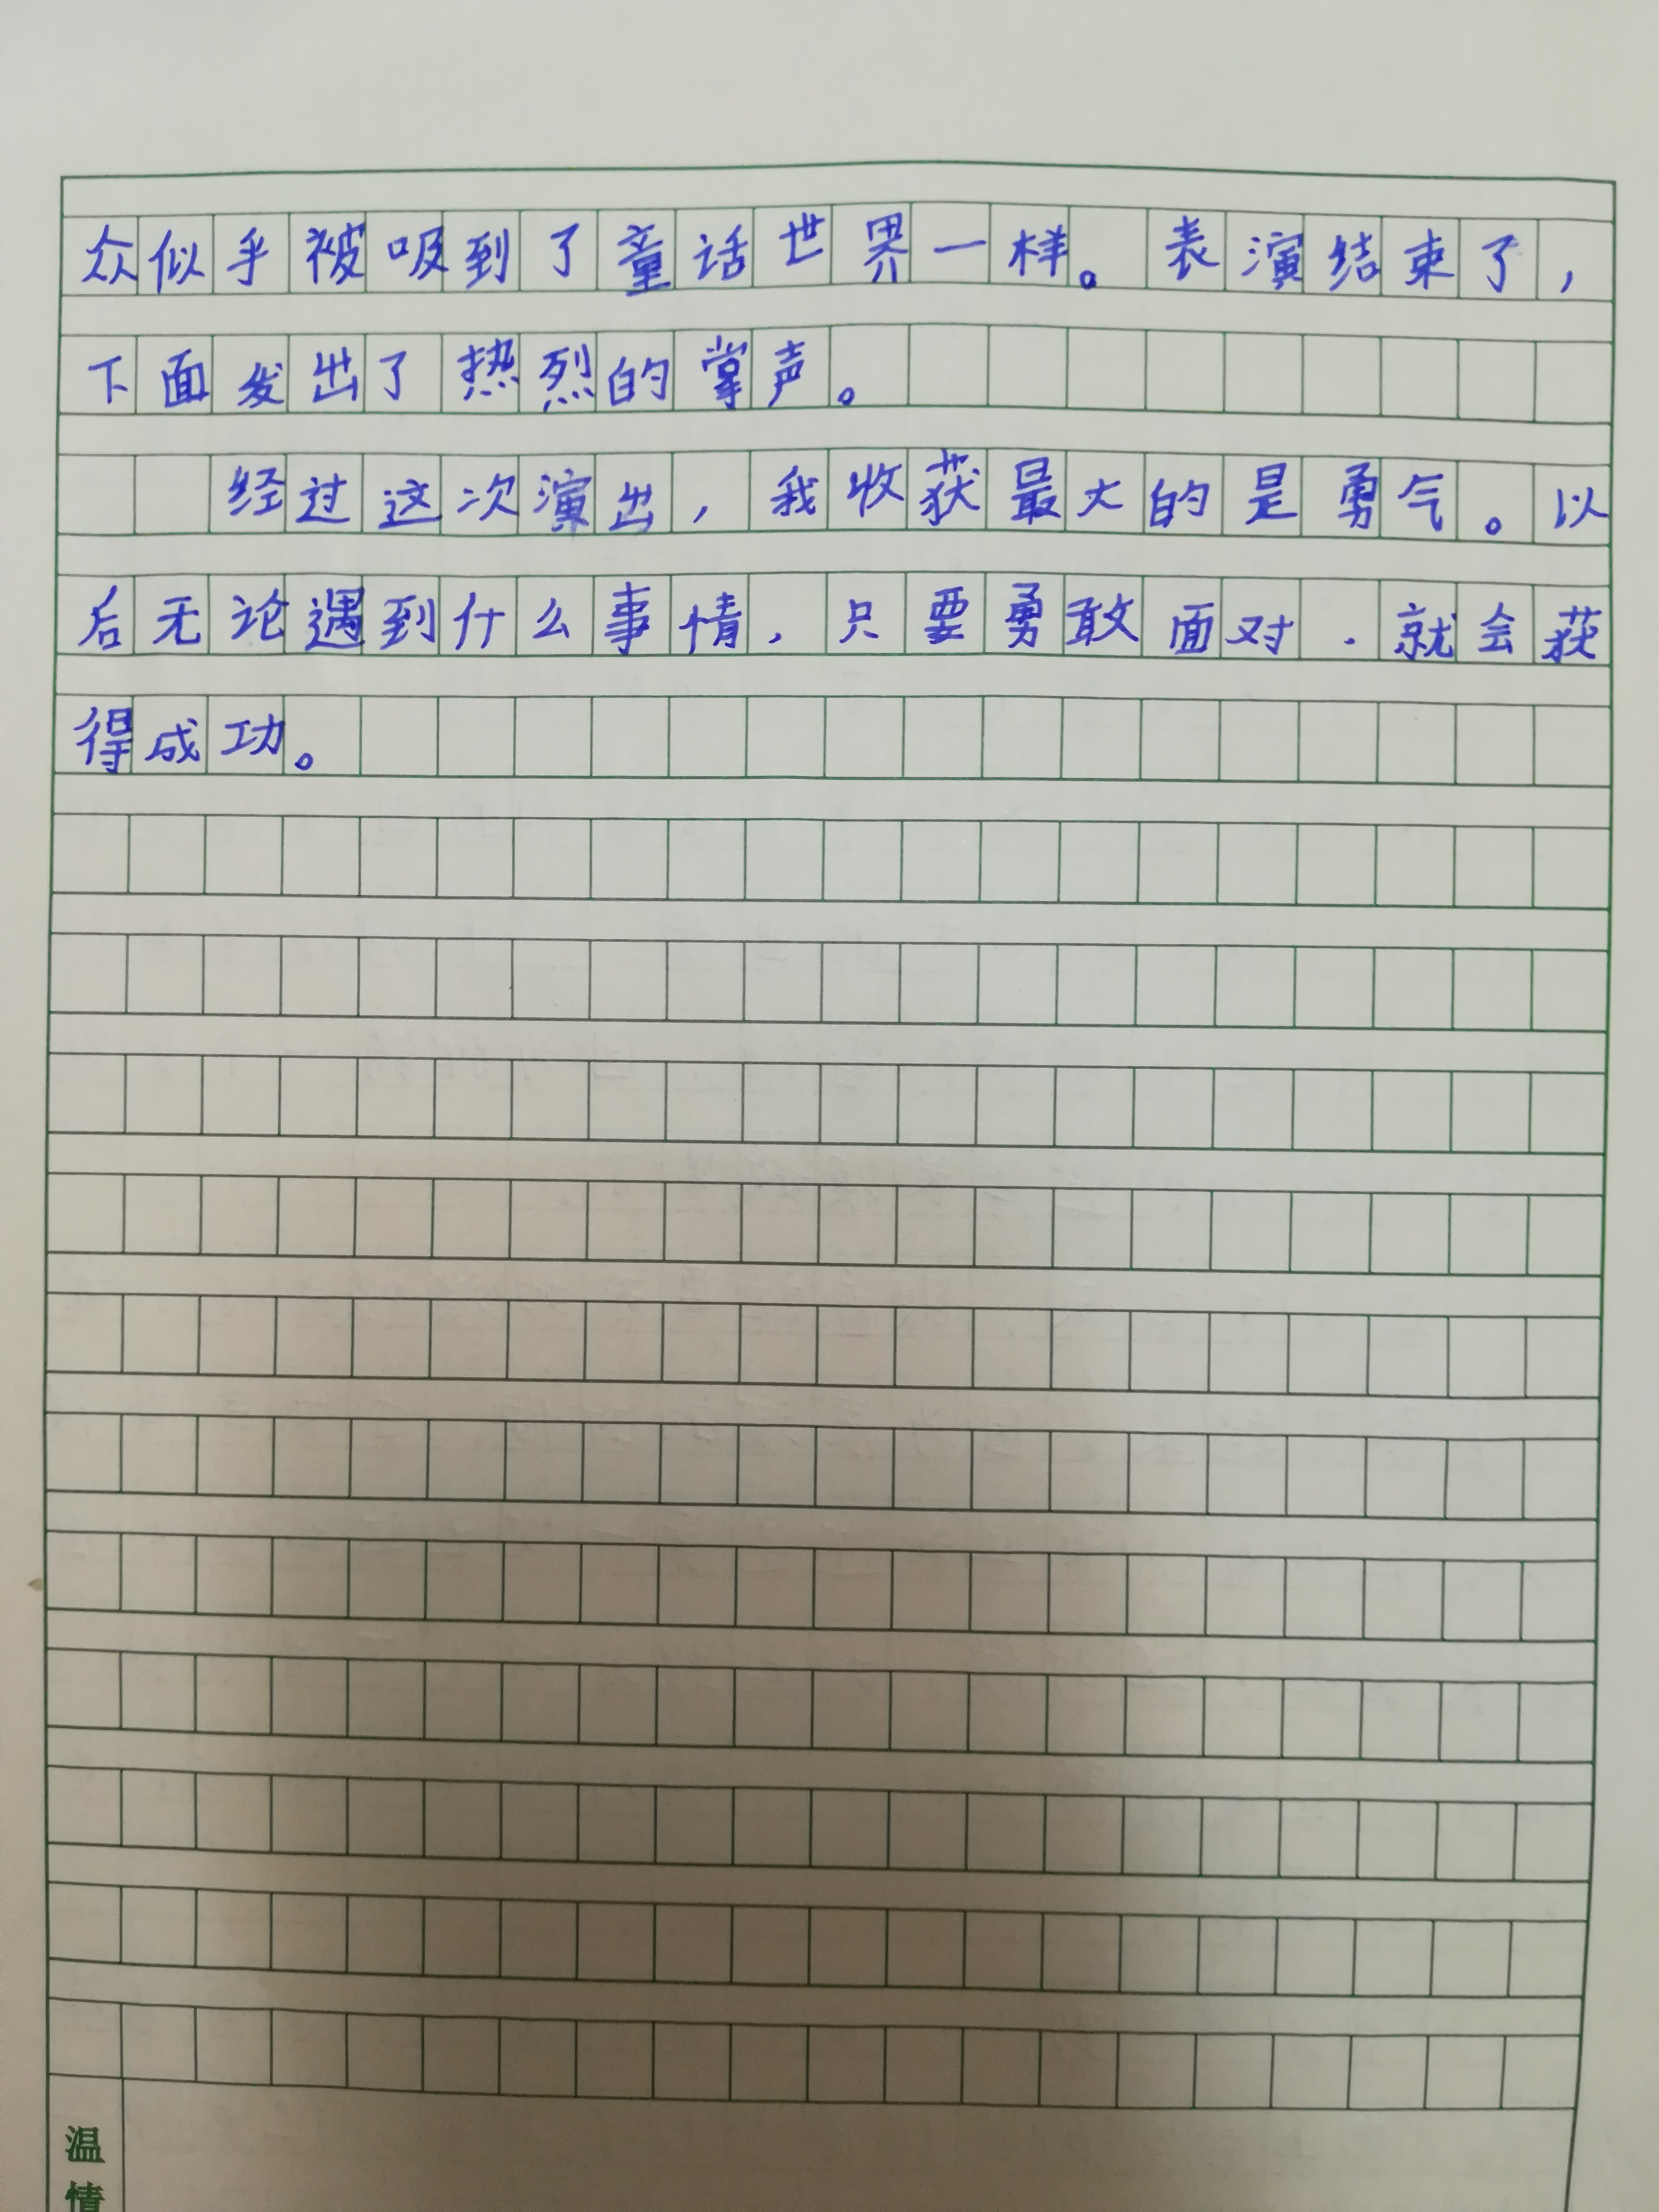 众似乎被吸到了童话世界一样。表演结束了，
下面发出了热烈的掌声。
经过这次演出，我收获最大的是勇气。以
后无论遇到什么事情，只要勇敢面对．就会获
得成功。
温
情